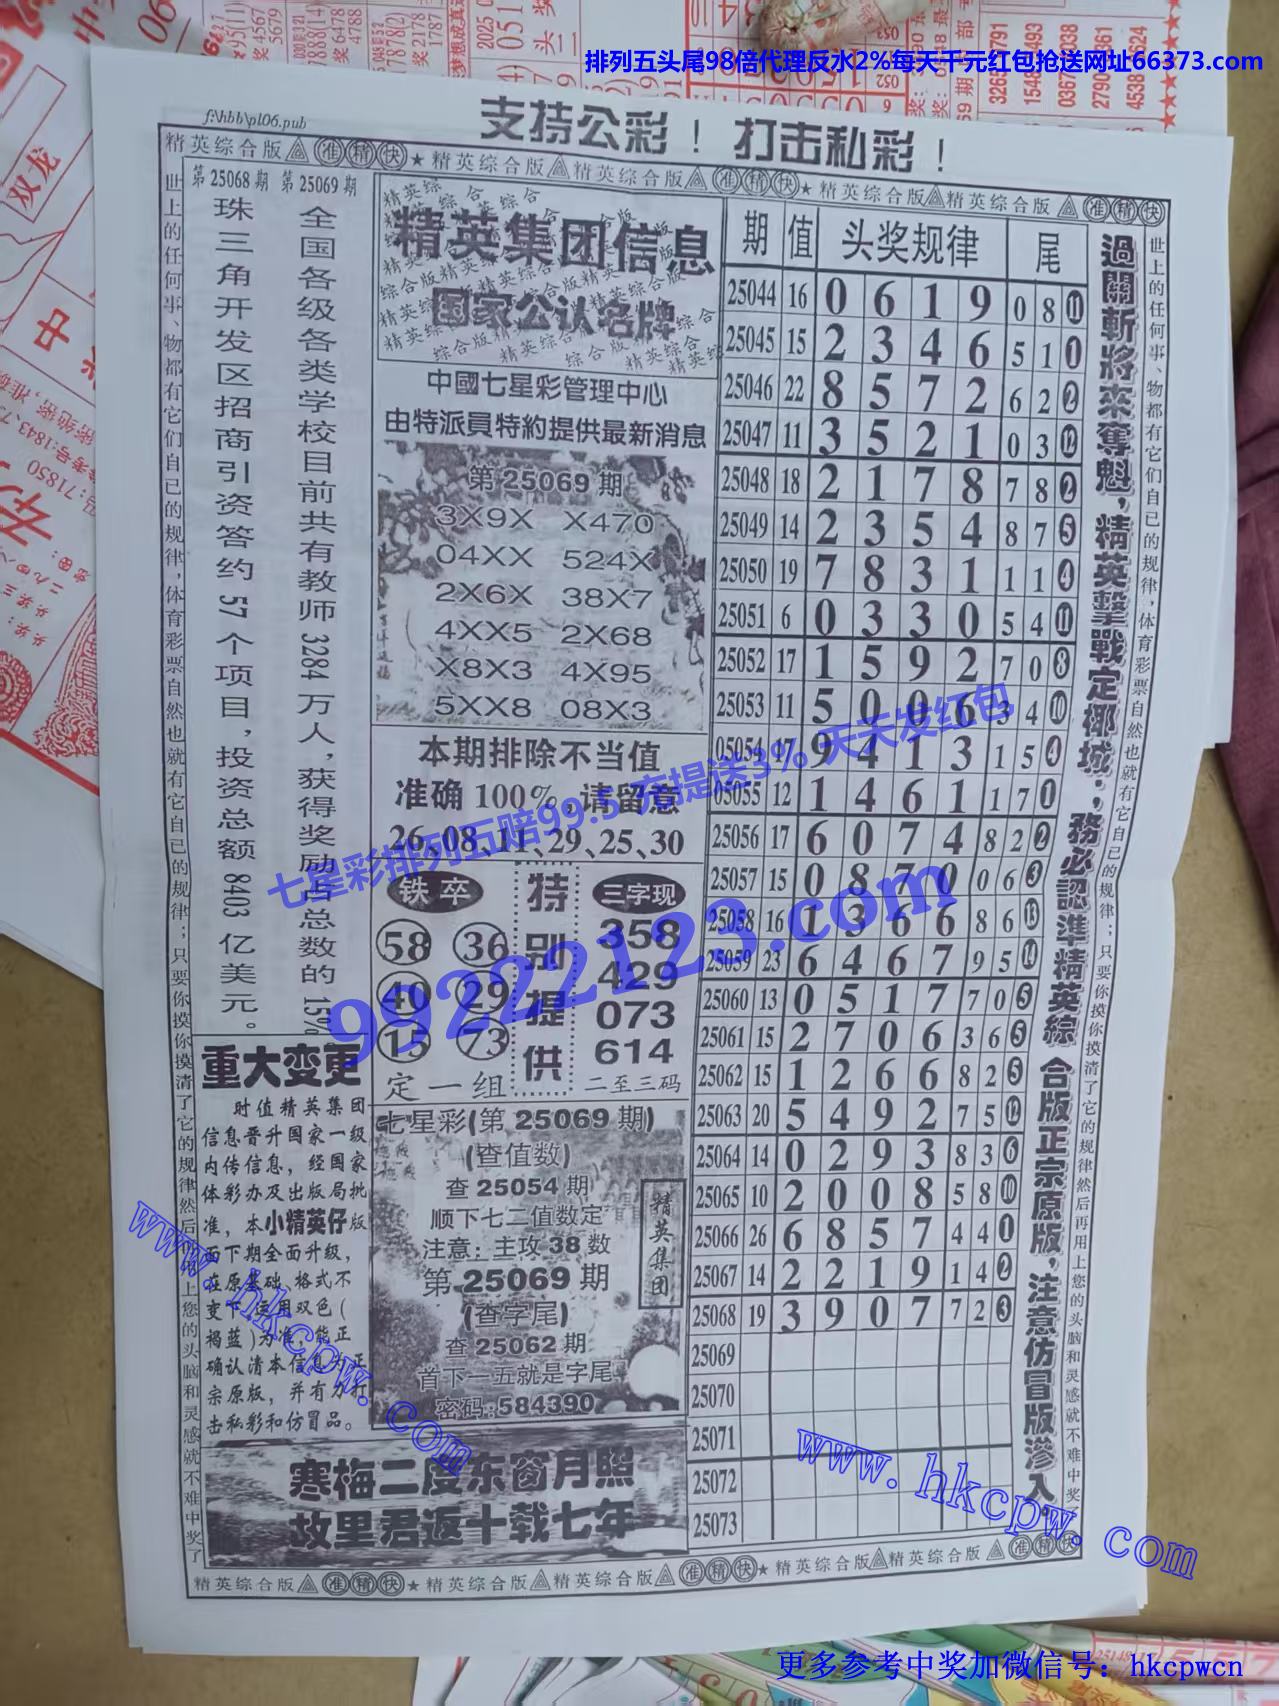 排列五头尾98倍代理反水2%每天千元红包抢送网址66373.com
f:\hbb\pl06.pub
支持公彩！打击私彩！
精英综合版 准精快★精英综合版 精英综合版 准精快★精英综合版 精英综合版 准精快
世上的任何事、物都有它们自已的规律，体育彩票自然也就有它自己的规律；只要你摸你摸清了它的规律然后再用上您的头脑和灵感就不难中奖了
第25068期
珠三角开发区招商引资答约57个项目，投资总额8403亿美元。
第25069期
全国各级各类学校目前共有教师3284万人，获得奖励占总数的15%
重大变更
时值精英集团
信息晋升国家一级
内传信息，经国家
体彩办及出版局批
准，本小精英仔版
面下期全面升级，
在原基础，格式不
变下，运用双色(
褐蓝)为准，能正
确认清本信息为正
宗原版，并有力打
击私彩和仿冒品。
精英集团信息
国家公认名牌
中國七星彩管理中心
由特派員特約提供最新消息
第25069期
3X9X X470
04XX 524X
2X6X 38X7
4XX5 2X68
X8X3 4X95
5XX8 08X3
本期排除不当值
准确100%,请留意
26、08、11、29、25、30
铁卒
58 36
40 29
15 73
定一组
特别提供
三字现
358
429
073
614
二至三码
七星彩(第25069期)
(查值数)
查25054期
顺下七二值数定
注意：主攻38数
第25069期
(查字尾)
查25062期
首下一五就是字尾
密码:584390
精英集团
寒梅二度东窗月照
故里君返十载七年
期 值 头奖规律 尾
25044 16 0 6 1 9 0 8 11
25045 15 2 3 4 6 5 1 1
25046 22 8 5 7 2 6 2 2
25047 11 3 5 2 1 0 3 12
25048 18 2 1 7 8 7 8 2
25049 14 2 3 5 4 8 7 5
25050 19 7 8 3 1 1 1 4
25051 6 0 3 3 0 5 4 11
25052 17 1 5 9 2 7 0 8
25053 11 5 0 0 6 3 4 10
05054 17 9 4 1 3 1 5 4
05055 12 1 4 6 1 1 7 1
25056 17 6 0 7 4 8 2 2
25057 15 0 8 7 0 0 6 3
25058 16 1 3 6 6 8 6 13
25059 23 6 4 6 7 9 5 14
25060 13 0 5 1 7 7 0 5
25061 15 2 7 0 6 3 6 5
25062 15 1 2 6 6 8 2 5
25063 20 5 4 9 2 7 5 12
25064 14 0 2 9 3 8 3 6
25065 10 2 0 0 8 5 8 10
25066 26 6 8 5 7 4 4 1
25067 14 2 2 1 9 1 4 2
25068 19 3 9 0 7 7 2 3
25069
25070
25071
25072
25073
過關斬將來奪魁，精英擊戰定椰城，務必認準精英綜合版正宗原版，注意仿冒版滲入。
世上的任何事、物都有它们自已的规律，体育彩票自然也就有它自己的规律；只要你摸你摸清了它的规律然后再用上您的头脑和灵感就不难中奖了
精英综合版 准精快★精英综合版 精英综合版 准精快★精英综合版 精英综合版 准精快
七星彩排列五赔99.5 充提送3% 天天发红包
99222123.com
www.hkcpw.com
www.hkcpw.com
更多参考中奖加微信号：hkcpwcn